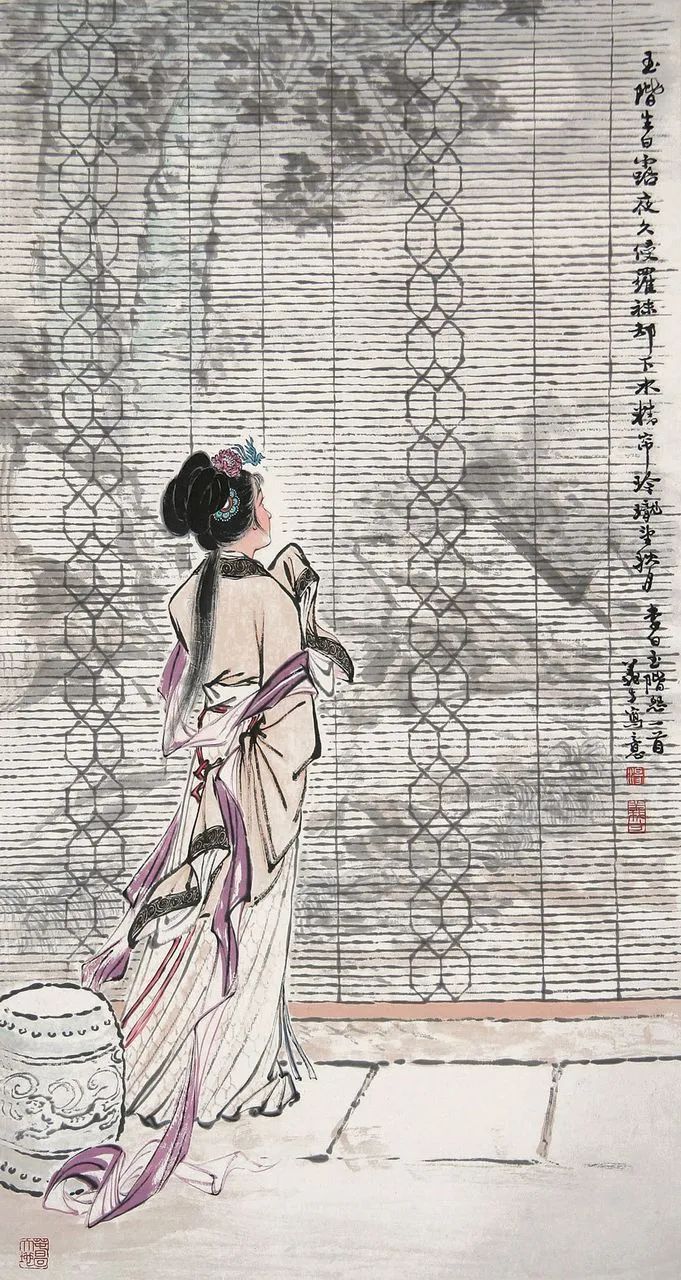 玉階生白露夜久侵羅袜却下水精帘玲瓏望秋月
李白玉階怨一首
寫意